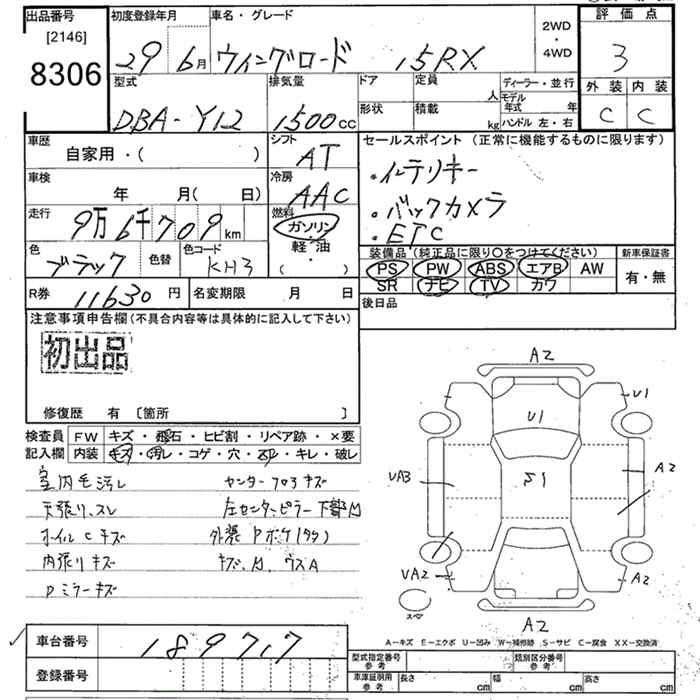 出品番号 [2146] 8306
初度登録年月 29 6月
車名・グレード ウィングロード 15RX
2WD・4WD
評価点 3
外装 C 内装 C
型式 DBA-Y12
排気量 1500cc
ドア 形状
定員 人 積載 kg
ディーラー・並行
モデル年式 年
ハンドル 左・右
車歴 自家用・( )
シフト AT
セールスポイント (正常に機能するものに限ります)
・インテリキー
・バックカメラ
・ETC
車検 年 月( 日)
冷房 AAC
走行 9万6千709km
燃料 ガソリン・軽・油 ( )
色 ブラック 色替
色コード KH3
装備品(純正品に限り○をつけてください)
PS PW ABS エアB AW
SR ナビ TV カワ
新車保証書 有・無
R券 11630円
名変期限 月 日
後日品
注意事項申告欄(不具合内容等は具体的に記入して下さい)
初出品
修復歴 有 〔箇所 〕
検査員 FW キズ・飛石・ヒビ割・リペア跡・×要
記入欄 内装 キズ・汚レ・コゲ・穴・スレ・キレ・破レ
室内毛汚レ
天張り、スレ
ホイルCキズ
内張りキズ
Dミラーキズ
センターフロアキズ
左センターピラー下部凹
外装Pボケ(タタ)
キズ、凹、ウスA
A2
U1
U1
S1
UA3
A2
UA2
A2
A2
スペア
A-キズ E-エクボ U-凹み W-補修跡 S-サビ C-腐食 XX-交換済
車台番号 189717
登録番号
型式指定番号 参考
類別区分番号 参考
車庫証明用 参考 長さ cm 幅 cm 高さ cm